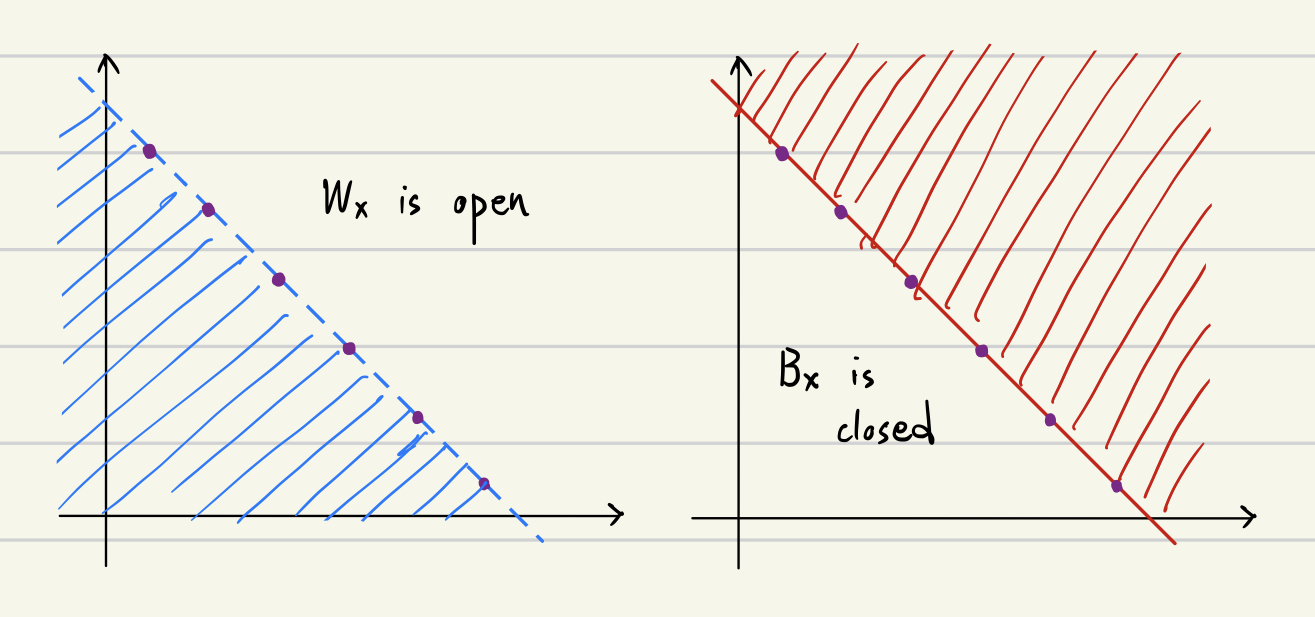 Wx is open
Bx is
closed